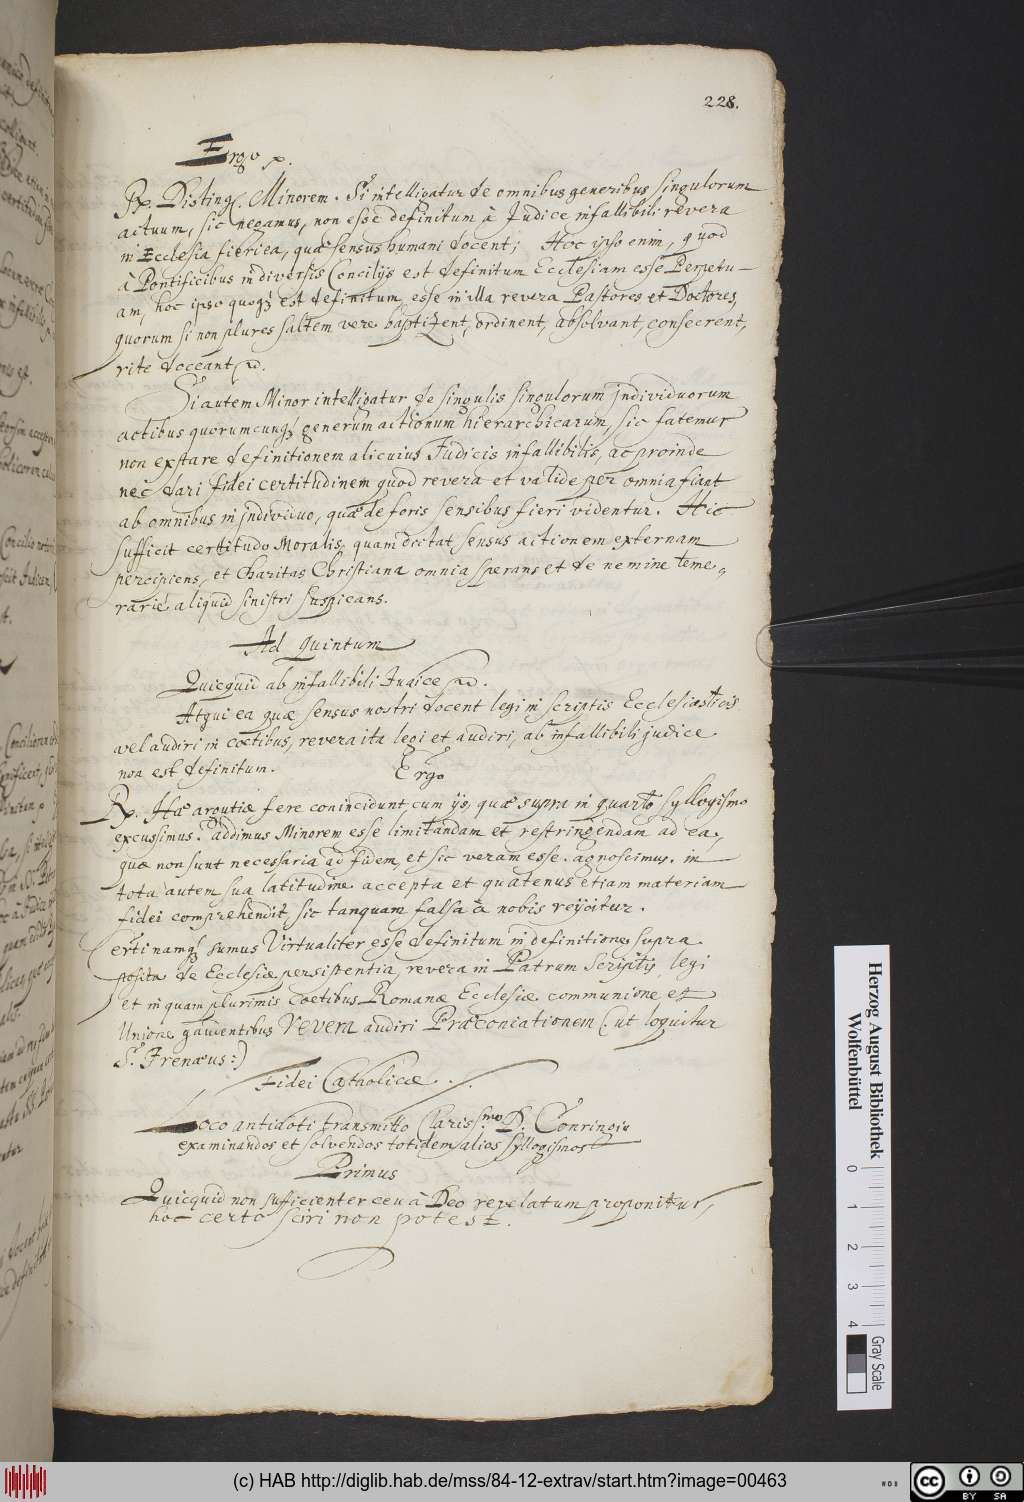 228.
Ergo p.
Rx. Disting. Minorem. Si intelligatur de omnibus generibus singulorum
actuum, sic negamus, non esse definitum à Judice infallibili revera
in Ecclesia fieri ea, quæ sensus humani docent; Hoc ipso enim, quod
à Pontificibus in diversis Concilijs est definitum Ecclesiam esse Perpetu-
am, hoc ipso quoqz est definitum esse in illa revera Pastores et Doctores,
quorum si non plures saltem vere baptizent, ordinent, absolvant, consecrent,
rite doceant p.
Si autem Minor intelligatur de singulis singulorum individuorum
actibus quorumcunqz generum actionum hierarchicarum, sic fatemur
non exstare definitionem alicuius Judicis infallibilis, ac proinde
nec dari fidei certitudinem quod revera et valide per omnia fiant
ab omnibus in individuo, quæ de foris sensibus fieri videntur. Hic
sufficit certitudo Moralis, quam dictat sensus actionem externam
percipiens, et Charitas Christiana omnia sperans et de nemine teme„
rarie aliquid sinistri suspicans.
Ad quintum
Quicquid ab infallibili Judice p.
Atqui ea quæ sensus nostri docent legi in scriptis Ecclesiasticis
vel audiri in coetibus, revera ita legi et audiri, ab infallibili judice
non est definitum. Ergo
Rx. Hæ argutiæ fere conincidunt cum ijs, quæ supra in quarto syllogismo
excussimus. addimus Minorem esse limitandam et restringendam ad ea,
quæ non sunt necessaria ad fidem, et sic veram esse agnoscimus. in
tota autem sua latitudine accepta et quatenus etiam materiam
fidei comprehendit, sic tanquam falsa à nobis reijcitur.
Certi namqz sumus Virtualiter esse definitum in definitione supra
posita de Ecclesiæ persistentia, revera in Patrum Scriptis legi
et in quam plurimis Coetibus Romanæ Ecclesiæ communione et
Unione gaudentibus revera audiri Præconiationem (: ut loquitur
S. Irenæus:)
Fidei Catholicæ.
Loco antidoti transmitto Clariss:mo D. Conringio
examinandos et solvendos totidem alios syllogismos
Primus
Quicquid non sufficienter ceu à Deo revelatum proponitur,
hoc certo sciri non potest.
Herzog August Bibliothek
Wolfenbüttel
0 1 2 3 4
Gray Scale
(c) HAB http://diglib.hab.de/mss/84-12-extrav/start.htm?image=00463
cc BY SA